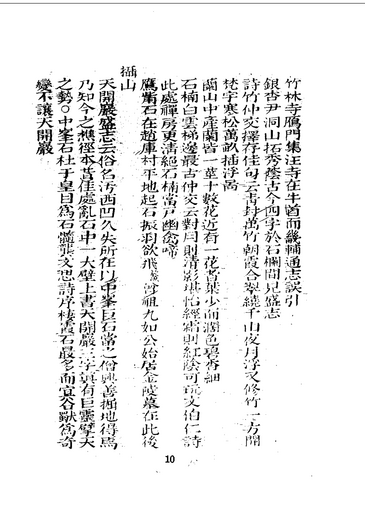 竹林寺鴈門集汪寺在牛首而畿輔通志誤引
銀杏尹洞山拓秀蔭古今四字於石欄間見盛志
詩竹仲交擇存佳句云青封萬竹朝霞合翠繞千山夜月浮又修竹一方開
梵宇寒松萬畝插浮嵒
蘭山中產蘭皆一莖十數花近有一花者葉少而潤色碧香細
石楠白雲梯邊最古仲交云對月則清影堪怡經霜則紅陰可玩文伯仁詩
此處禪房更清絕石楠當戶幽禽啼
鷹嘴石在趙庫村平地起石振羽欲飛盛湾祖九如公始居金陵墓在此後
攝山
天開巖盛志云俗名洿西凹久失所在以中峯巨石當之僧興善掘地得焉
乃知今之樵徑本昔佳處亂石中一大壁上書天開巖三字眞有巨靈擘天
之勢○中峯石杜于皇目爲石髓張文忽詩序棲霞石最多而宜谷獻爲奇
變不讓天開巖
10